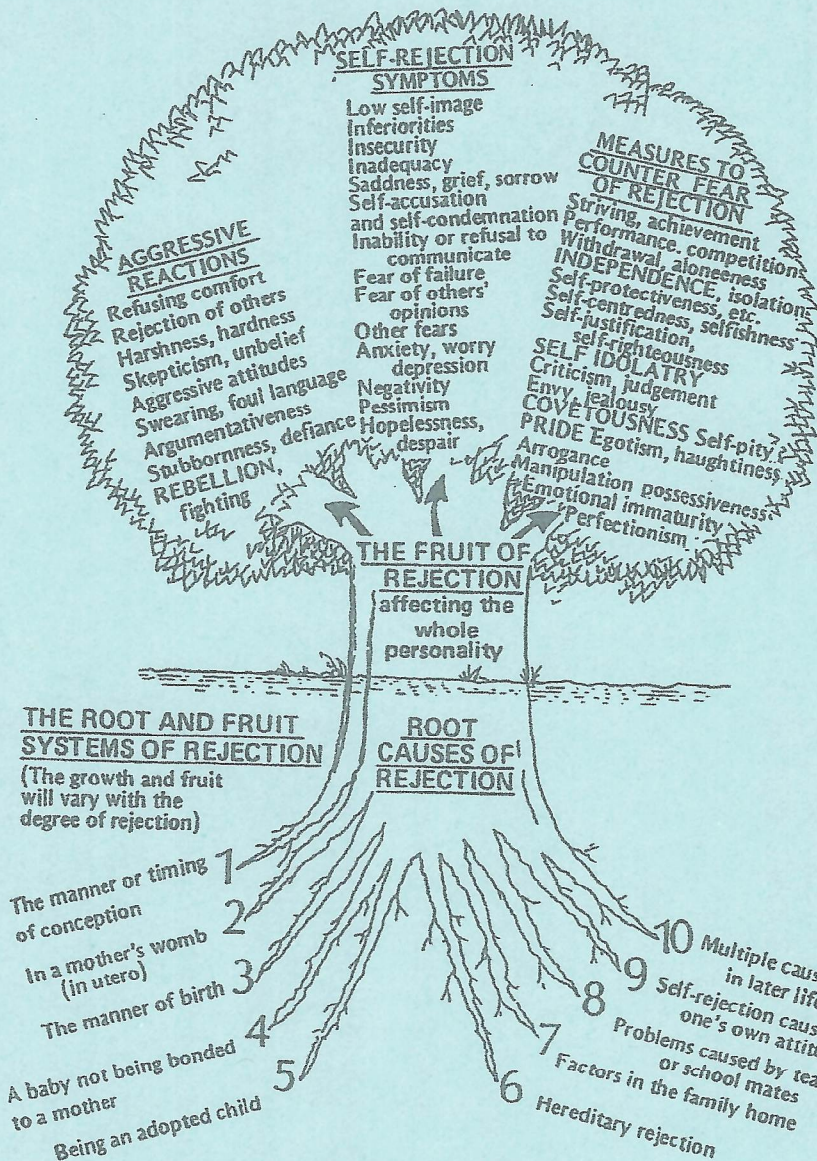 SELF-REJECTION
SYMPTOMS
Low self-image
Inferiorities
Insecurity
Inadequacy
Saddness, grief, sorrow
Self-accusation
and self-condemnation
Inability or refusal to
communicate
Fear of failure
Fear of others'
opinions
Other fears
Anxiety, worry
depression
Negativity
Pessimism
Hopelessness,
despair
AGGRESSIVE
REACTIONS
Refusing comfort
Rejection of others
Harshness, hardness
Skepticism, unbelief
Aggressive attitudes
Swearing, foul language
Argumentativeness
Stubbornness, defiance
REBELLION,
fighting
MEASURES TO
COUNTER FEAR
OF REJECTION
Striving, achievement
Performance, competition
Withdrawal, aloneeness
INDEPENDENCE, isolation
Self-protectiveness, etc.
Self-centredness, selfishness
Self-justification,
self-righteousness
SELF IDOLATRY
Criticism, judgement
Envy, jealousy
COVETOUSNESS Self-pity
PRIDE Egotism, haughtiness
Arrogance
Manipulation possessiveness
Emotional immaturity
Perfectionism
THE FRUIT OF
REJECTION
affecting the
whole
personality
THE ROOT AND FRUIT
SYSTEMS OF REJECTION
(The growth and fruit
will vary with the
degree of rejection)
ROOT
CAUSES OF
REJECTION
1 The manner or timing
of conception
2 In a mother's womb
(in utero)
3 The manner of birth
4 A baby not being bonded
to a mother
5 Being an adopted child
6 Hereditary rejection
7 Factors in the family home
8 Problems caused by
or school mates
9 Self-rejection
one's own
10 Multiple
in later